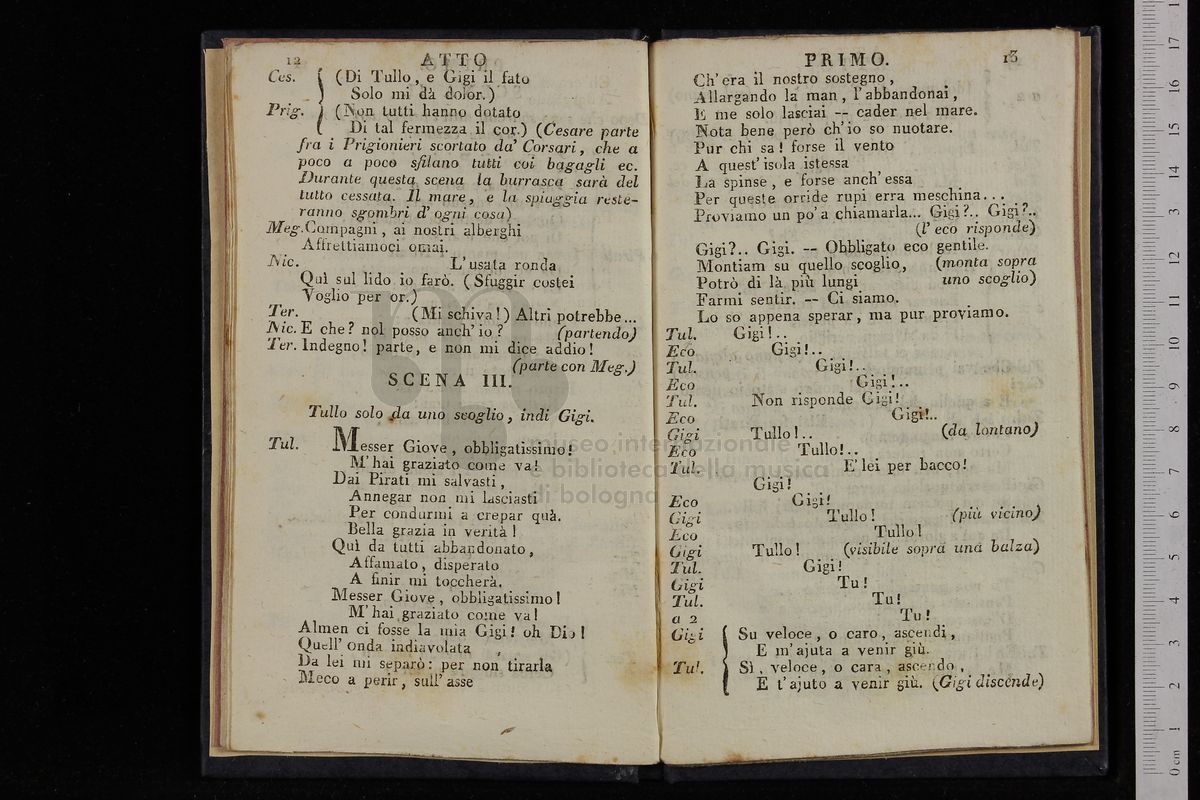 12 ATTO
Ces. (Di Tullo, e Gigi il fato
Solo mi dà dolor.)
Prig. (Non tutti hanno dotato
Di tal fermezza il cor.) (Cesare parte
fra i Prigionieri scortato da' Corsari, che a
poco a poco sfilano tutti coi bagagli ec.
Durante questa scena la burrasca sarà del
tutto cessata. Il mare, e la spiaggia reste-
ranno sgombri d'ogni cosa)
Meg. Compagni, ai nostri alberghi
Affrettiamoci omai.
Nic. L'usata ronda
Quì sul lido io farò. (Sfuggir costei
Voglio per or.)
Ter. (Mi schiva!) Altri potrebbe...
Nic. E che? nol posso anch'io? (partendo)
Ter. Indegno! parte, e non mi dice addio!
(parte con Meg.)
SCENA III.
Tullo solo da uno scoglio, indi Gigi.
Tul. Messer Giove, obbligatissimo!
M'hai graziato come va!
Dai Pirati mi salvasti,
Annegar non mi lasciasti
Per condurmi a crepar quà.
Bella grazia in verità!
Quì da tutti abbandonato,
Affamato, disperato
A finir mi toccherà.
Messer Giove, obbligatissimo!
M'hai graziato come va!
Almen ci fosse la mia Gigi! oh Dio!
Quell'onda indiavolata
Da lei mi separò: per non tirarla
Meco a perir, sull'asse
PRIMO. 13
Ch'era il nostro sostegno,
Allargando la man, l'abbandonai,
E me solo lasciai -- cader nel mare.
Nota bene però ch'io so nuotare.
Pur chi sa! forse il vento
A quest'isola istessa
La spinse, e forse anch'essa
Per queste orride rupi erra meschina...
Proviamo un po'a chiamarla... Gigi?.. Gigi?..
(l'eco risponde)
Gigi?.. Gigi. -- Obbligato eco gentile.
Montiam su quello scoglio, (monta sopra
Potrò di là più lungi uno scoglio)
Farmi sentir. -- Ci siamo.
Lo so appena sperar, ma pur proviamo.
Tul. Gigi!..
Eco Gigi!..
Tul. Gigi!..
Eco Gigi!..
Tul. Non risponde Gigi!
Eco Gigi!..
Gigi Tullo!.. (da lontano)
Eco Tullo!..
Tul. E' lei per bacco!
Gigi!
Eco Gigi!
Gigi Tullo! (più vicino)
Eco Tullo!
Gigi Tullo! (visibile sopra una balza)
Tul. Gigi!
Gigi Tu!
Tul. Tu!
a 2 Tu!
Gigi Su veloce, o caro, ascendi,
E m'ajuta a venir giù.
Tul. Sì, veloce, o cara, ascendo,
E t'ajuto a venir giù. (Gigi discende)
museo internazionale
e biblioteca della musica
di bologna
0 cm 1 2 3 4 5 6 7 8 9 10 11 12 13 14 15 16 17